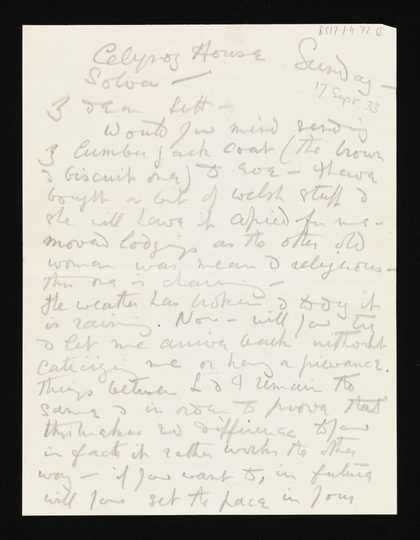 8717.1.4.72
Celyrog House
Sunday —
Solva —
17 Sept 33
dear Sett —
Would you mind sending
lumber jack coat (the brown
& biscuit one) to Eve — I have
bought a bit of welsh stuff &
she will have it copied for me —
moved lodgings as the other old
woman was mean & religious —
this one is charming —
The weather has broken & today it
is raining. Now — will you try
& let me arrive back without
criticizing me or having a grievance.
Things between L & I remain the
same & in order to prove that
this makes no difference to you
in fact it rather works the other
way — if you want to, in future
will you set the pace in your